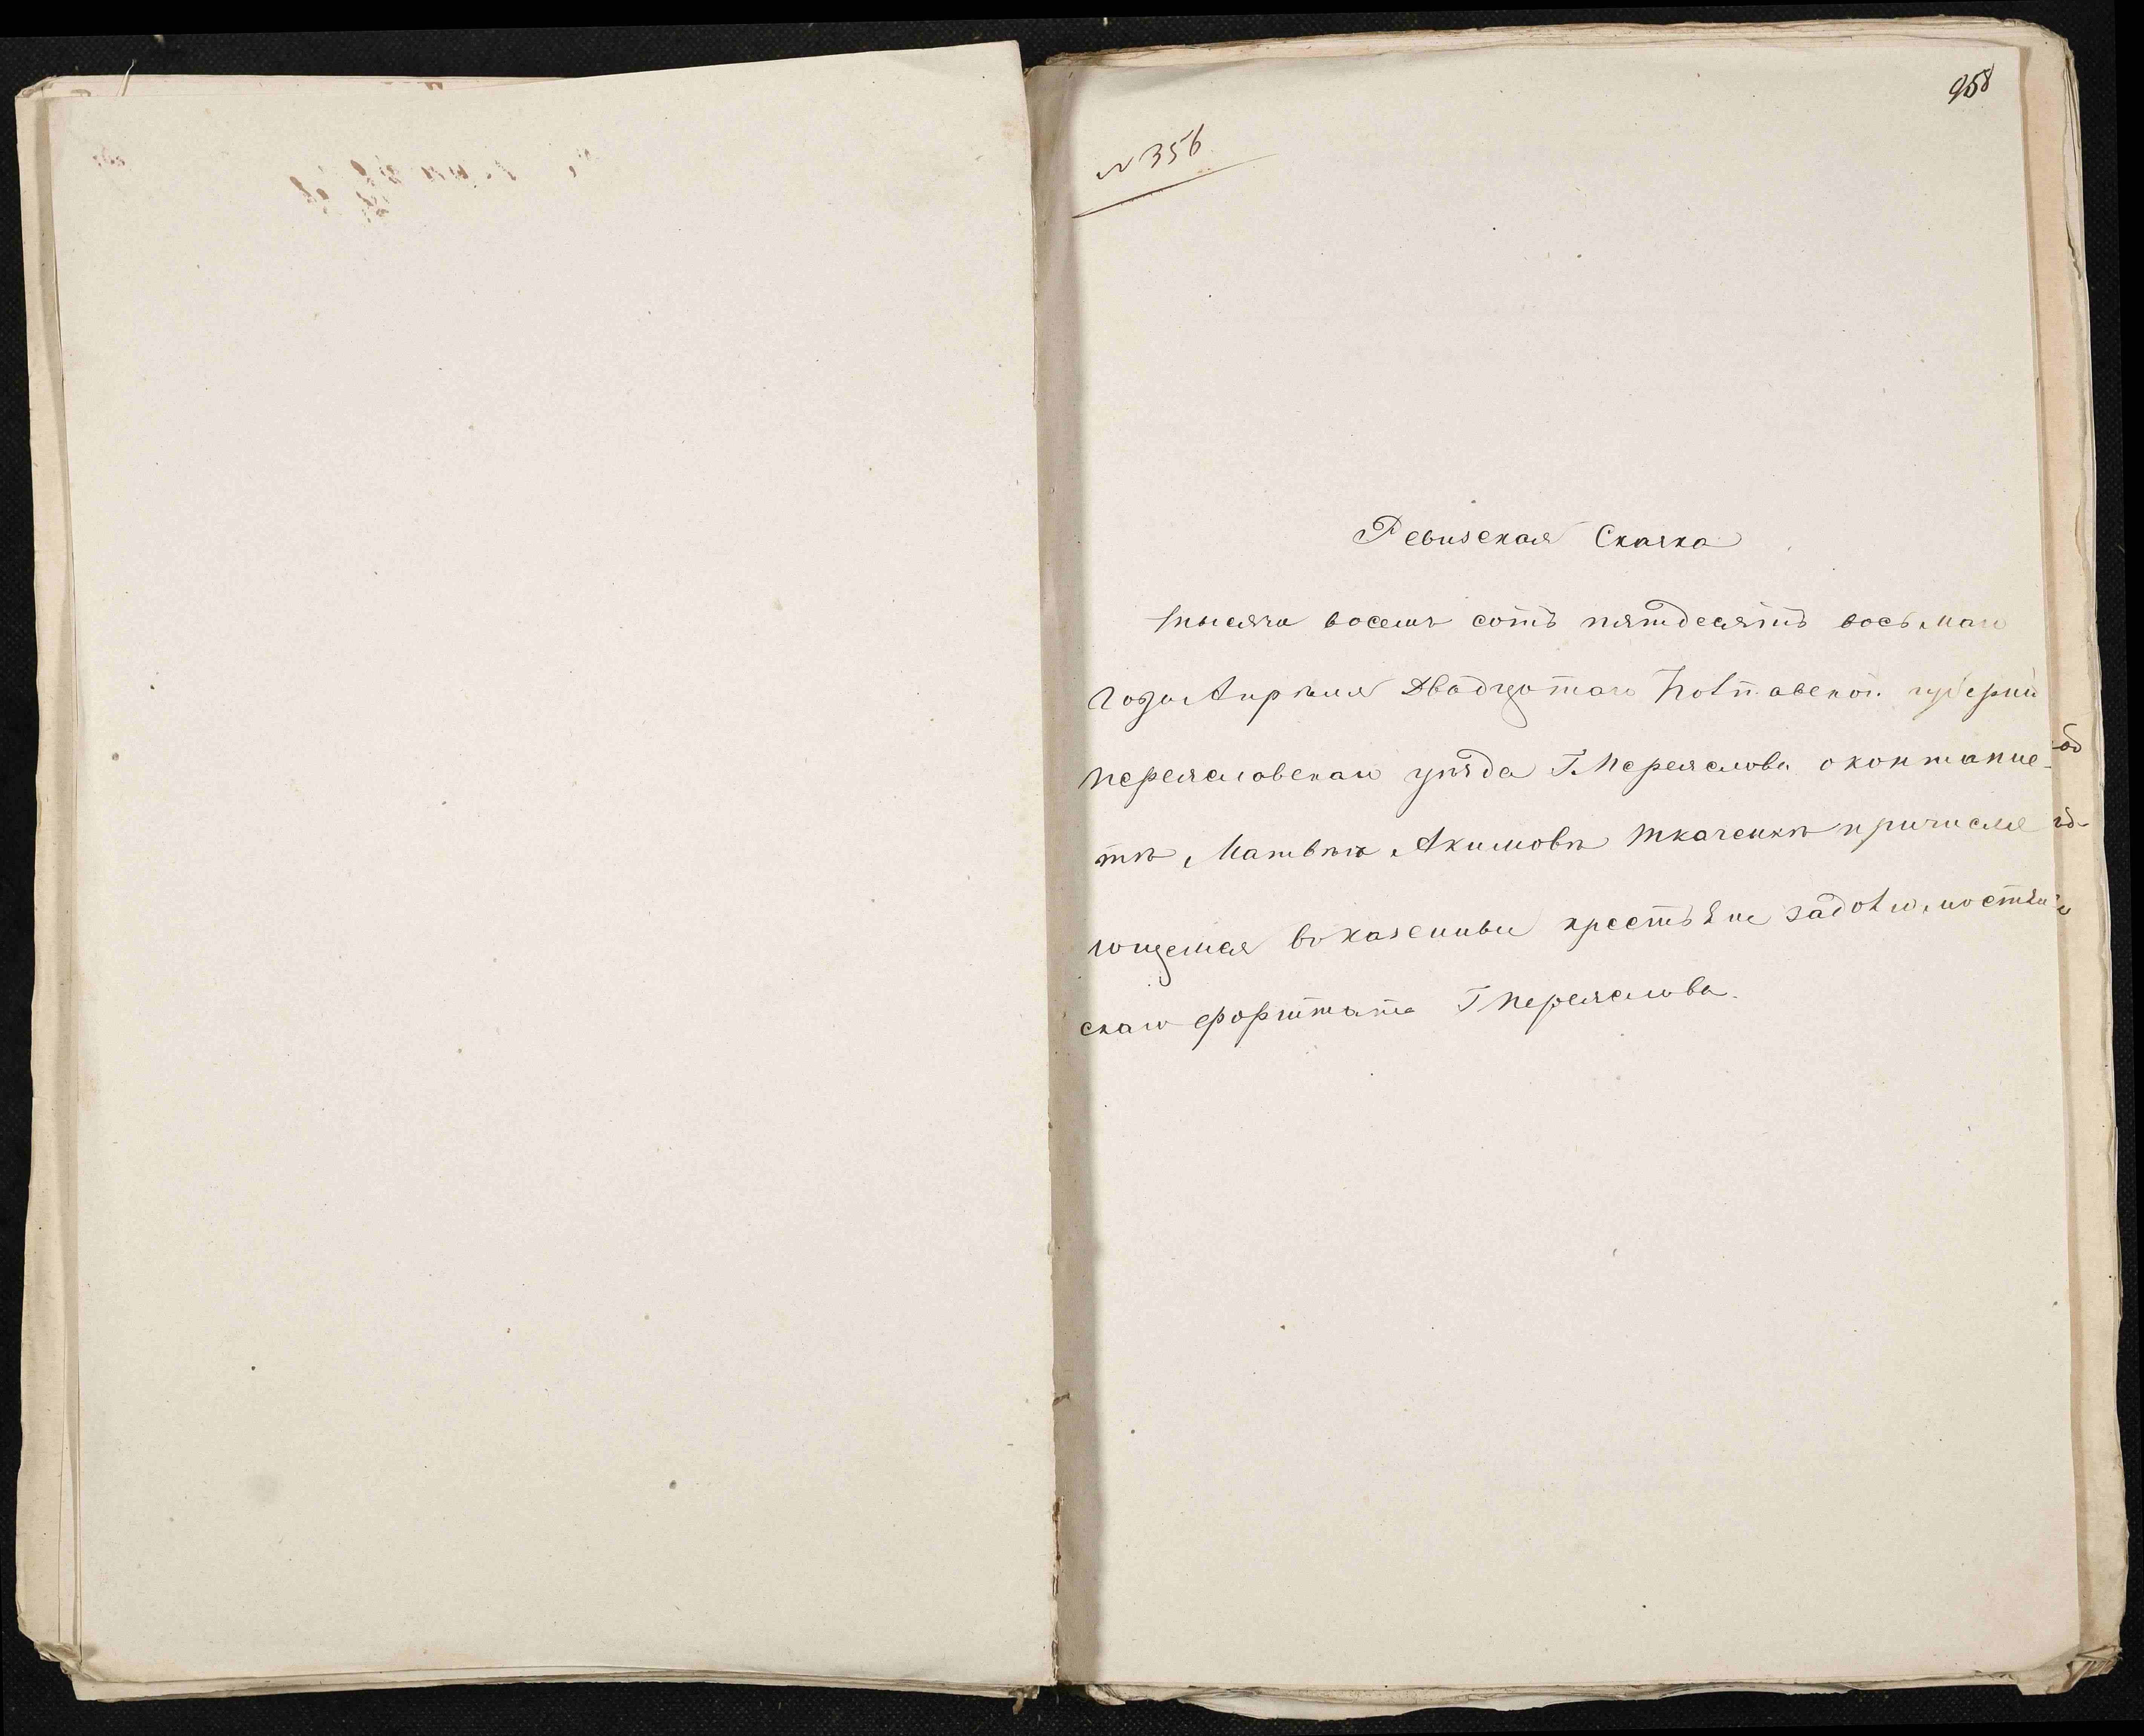 958
№ 356
Ревизская Сказка
тысяча восемь сотъ пятдесятъ восьмаго
года Апреля двадцатаго Полтавской губерніи
переяславскаго уезда Г. Переяслова о контанис-
тѣ Матвѣѣ Акимовѣ Ткаченкѣ причисля
ющемся въ казенныи крестьяне задолго
скаго форштата Г Переяслова.